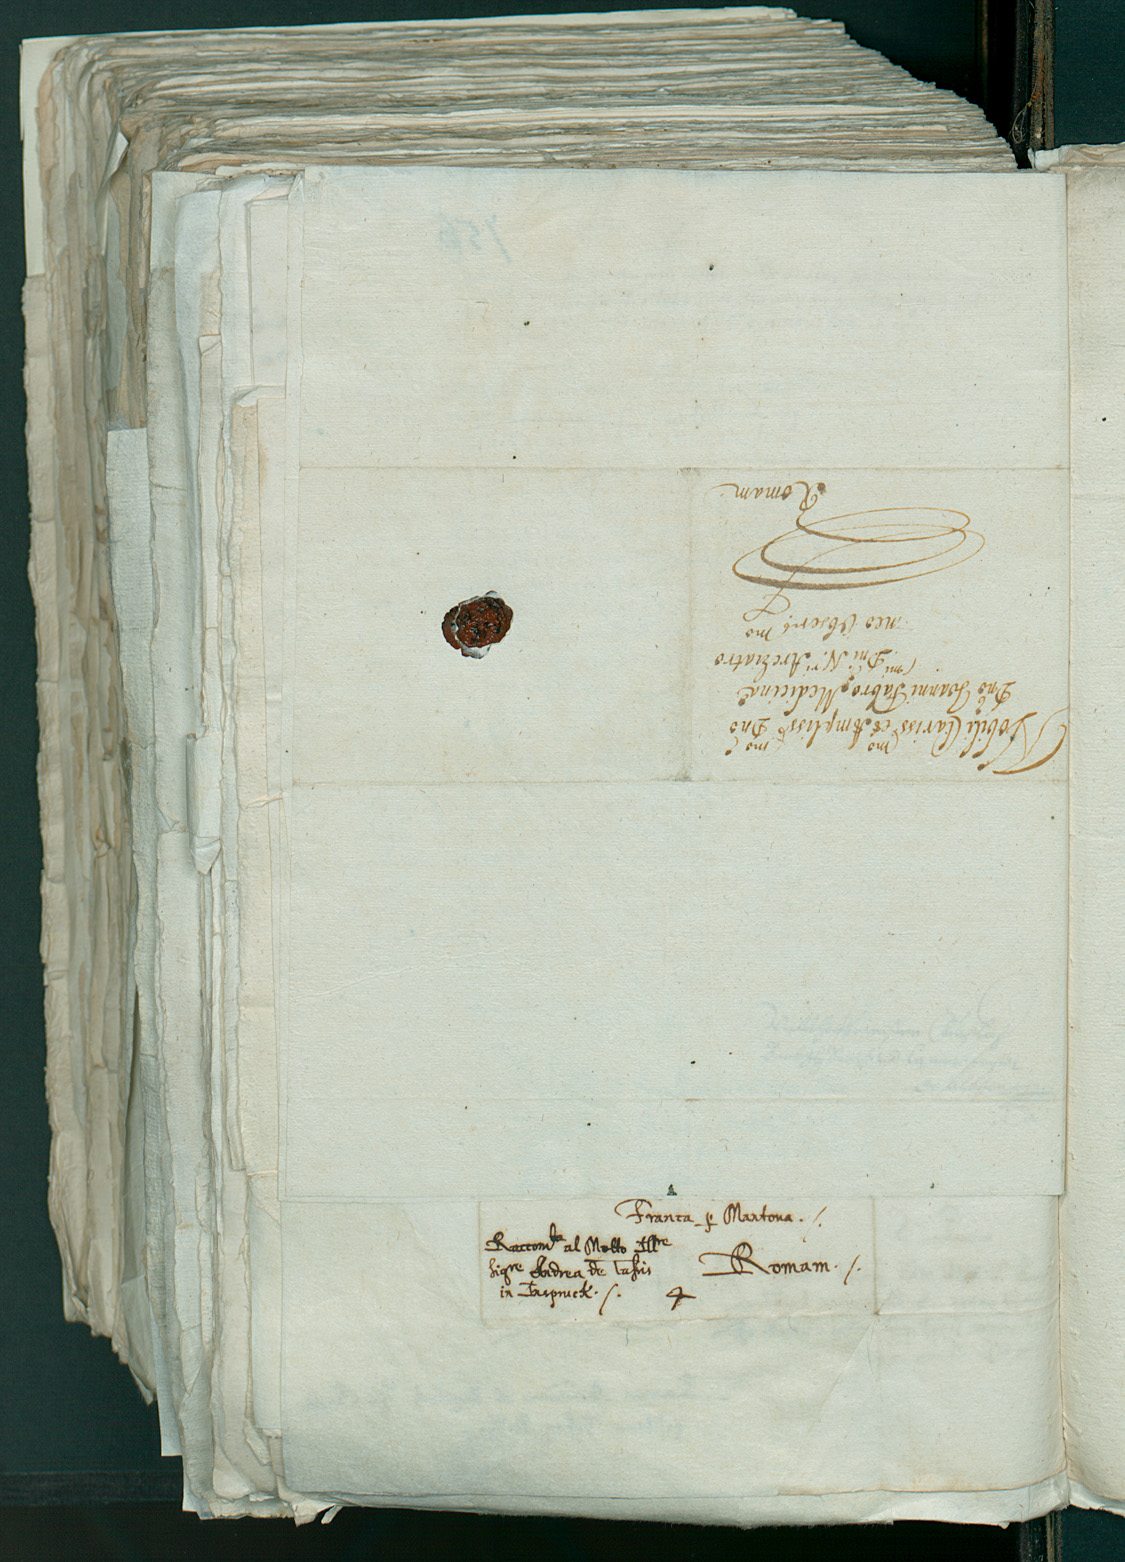 Nobili Clariss.mo et Ampliss.mo Dno
Dno Joanni Fabro Medicinæ
S.mi Dni N.ri Archiatro
meo Observ.mo
Romam.
Franca p Mantoua.
Raccom.ta al Molto Ill.re
Sig.re Andrea de Tassis
in Inspruck.
Romam.